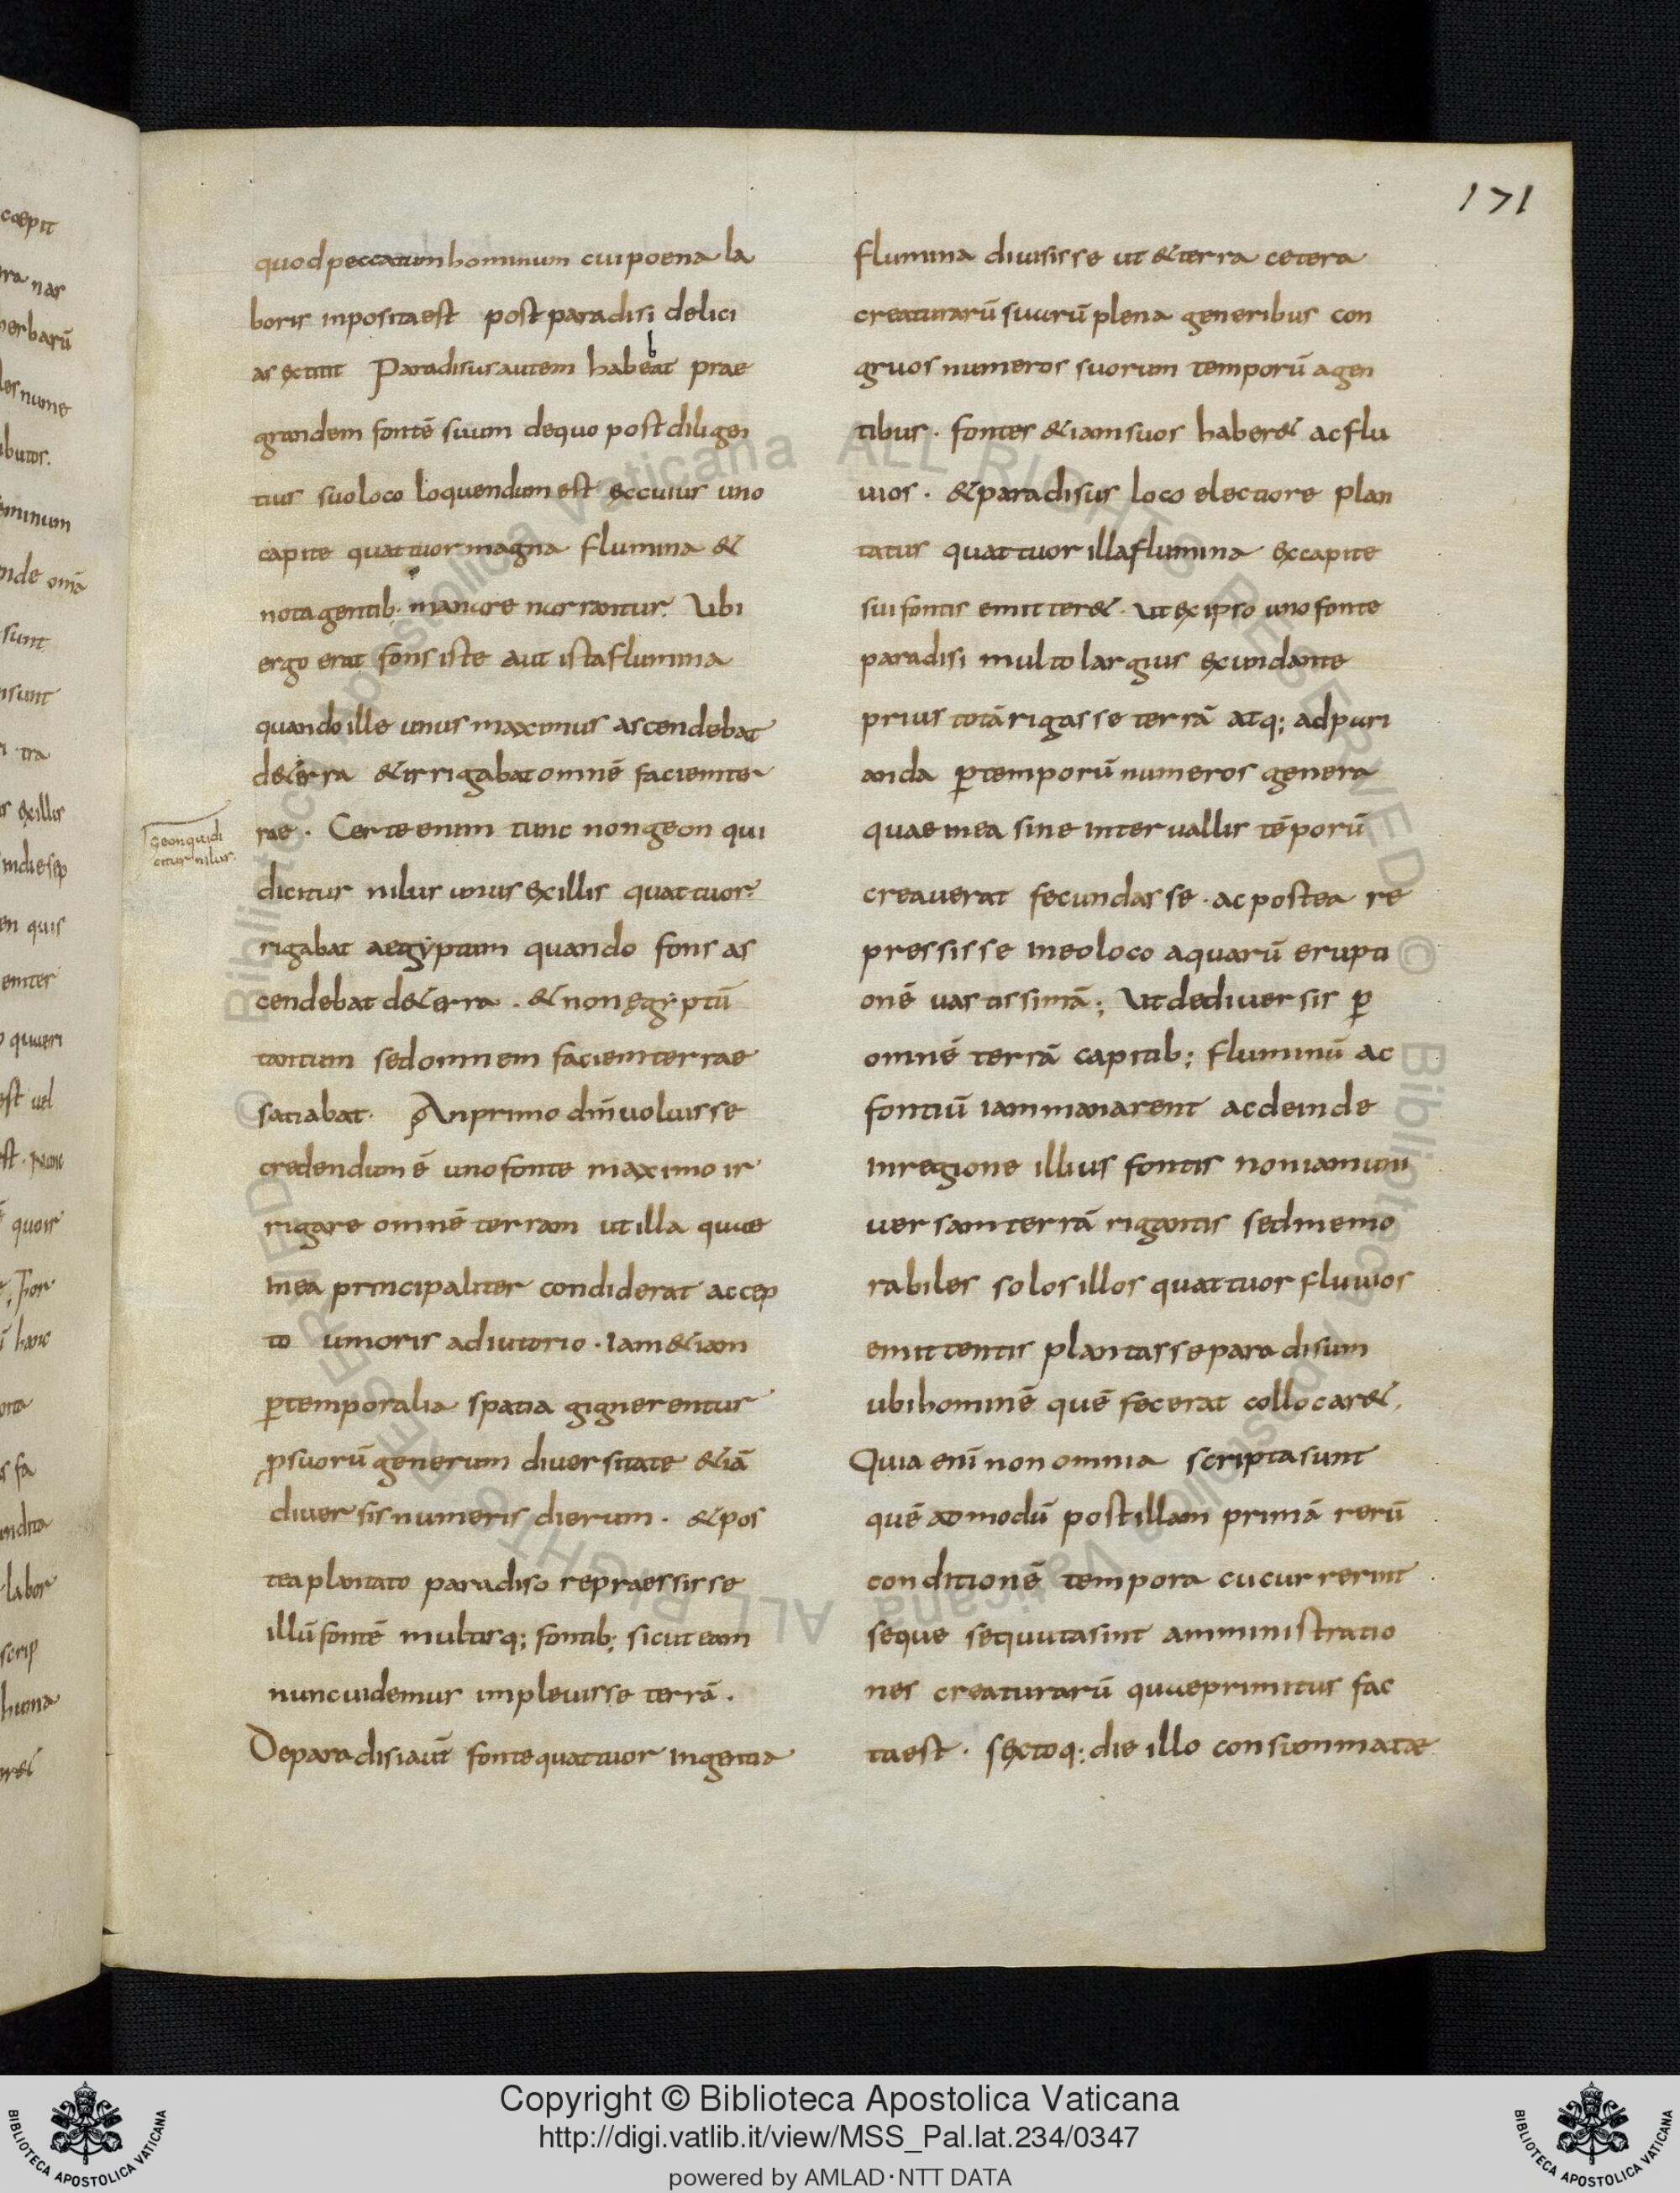 171
quod peccatum hominum cui poena la
boris inposita est post paradisi delici
as extitit Paradisus autem habebat prae
grandem fontē suum de quo post diligen
tius suo loco loquendum est ex cuius uno
capite quattuor magna flumina &
nota gentib· manare narrantur. Ubi
ergo erat fons iste aut ista flumina
quando ille unus maximus ascendebat
de terra & irrigabat omnē faciem ter
rae. Certe enim tunc non geon qui
geon qui di
citur nilus.
dicitur nilus unus ex illis quattuor
rigabat aegyptum quando fons as
cendebat de terra. & non ęgyptū
tantum sed omnem faciem terrae
satiabat. An primo dm̄ uoluisse
credendum ē uno fonte maximo ir
rigare omnē terram ut illa quae
in ea principaliter condiderat accep
to umoris adiutorio. Iam &iam
ꝑ temporalia spatia gignerentur
ꝓ suorū generum diuersitate &iā
diuersis numeris dierum. & pos
tea plantato paradiso repraessisse
illū fontē multisq; fontib; sicut eam
nunc uidemus impleuisse terrā.
De paradisi aut̄ fonte quattuor ingentia
flumina diuisisse ut & terra cetera
creaturarū suarū plena generibus con
gruos numeros suorum temporū agen
tibus. fontes &iam suos haber& ac flu
uios. & paradisus loco electiore plan
tatus quattuor illa flumina ex capite
sui fontis emitter&. Ut ex ipso uno fonte
paradisi multo largius exundante
prius totā rigasse terrā atq; ad puri
anda ꝑ temporū numeros genera
quae in ea sine interuallis tēporū
creauerat fecundasse. ac postea re
pressisse in eo loco aquarū erupti
onē uastissimā; Ut de diuersis ꝑ
omnē terrā capitib; fluminū ac
fontiū iam manarent ac deinde
in regione illius fontis non iam uni
uersam terrā rigantis sed memo
rabiles solos illos quattuor fluuios
emittentis plantasse paradisum
ubi hominē quē fecerat collocar&.
Quia enī non omnia scripta sunt
quē admodū post illam primā rerū
conditionē tempora cucurrerint
seque sequuta sint amministratio
nes creaturarū quae primitus fac
ta est. sextoq; die illo consummatae
Copyright © Biblioteca Apostolica Vaticana
http://digi.vatlib.it/view/MSS_Pal.lat.234/0347
powered by AMLAD·NTT DATA
BIBLIOTECA APOSTOLICA VATICANA
BIBLIOTECA APOSTOLICA VATICANA